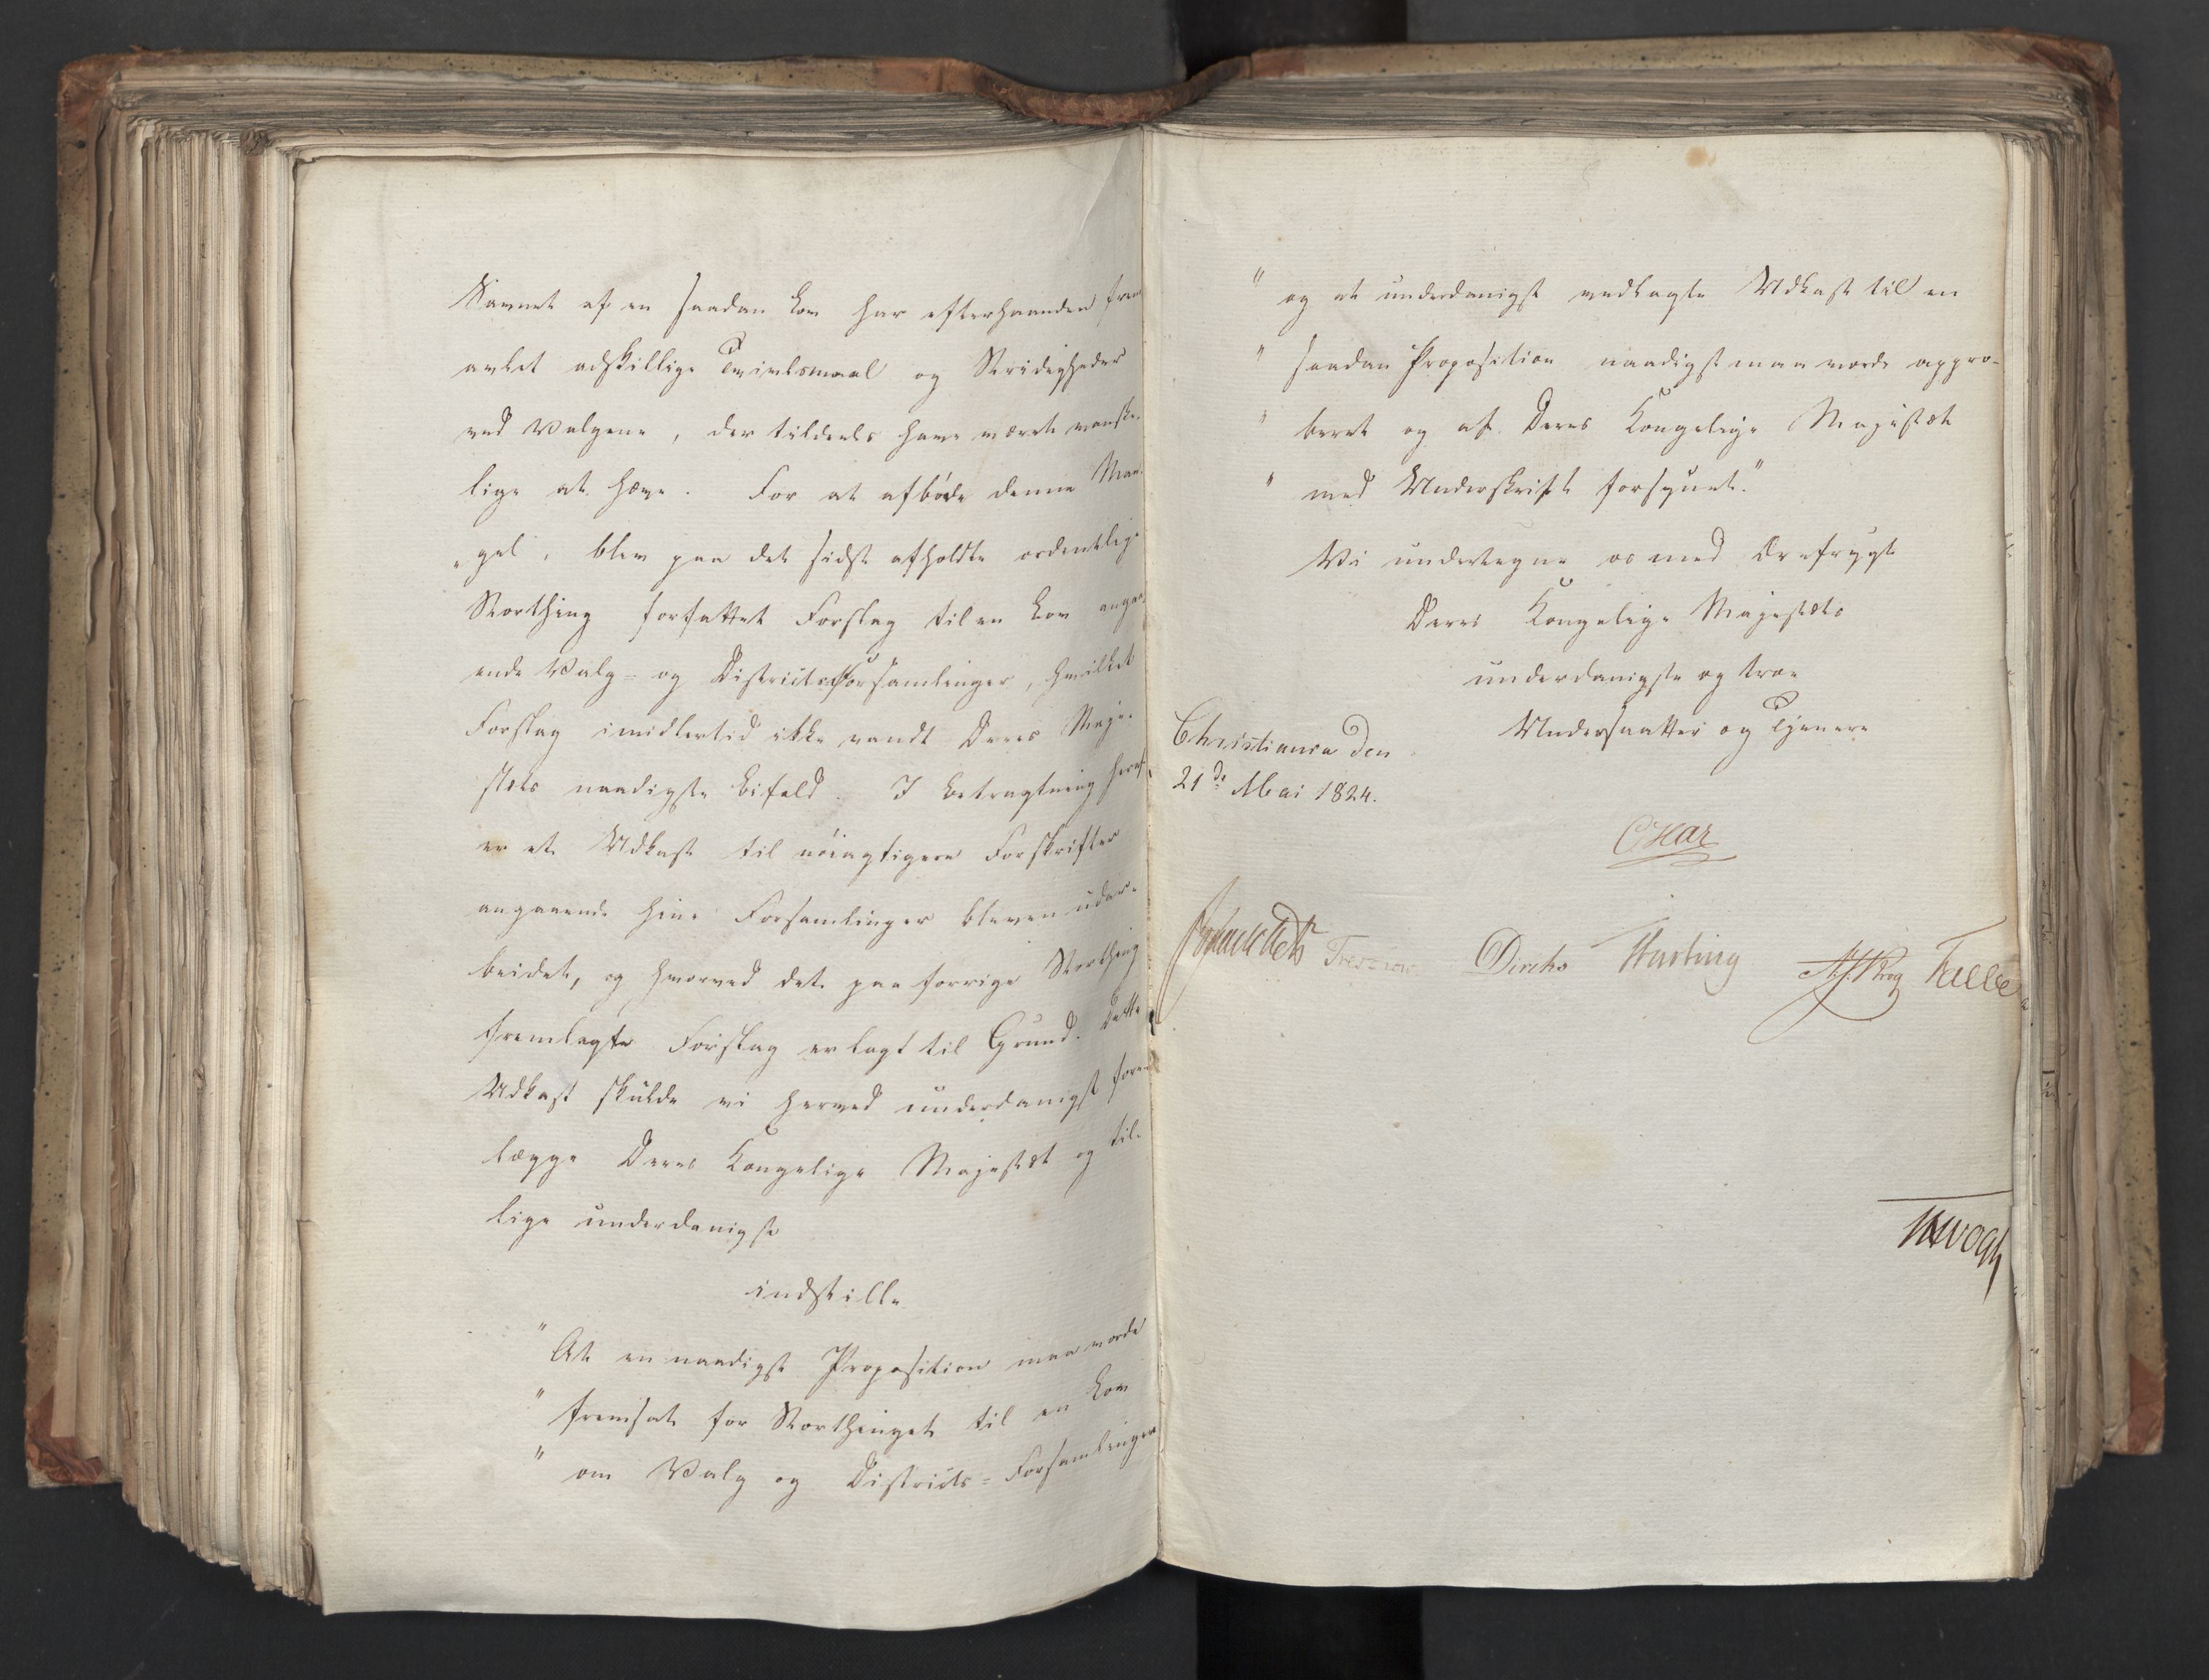 Savnet af en saadan Lov har efterhaanden frem
avlet adskillige Tvivlsmaal og Stridigheder
ved Valgene, der tildeels have været vanske-
lige at hæve. For at afbøde denne Man-
gel, blev paa det sidst afholdte ordentlige
Storthing forfattet Forslag til en Lov angaa-
ende Valg- og Districtsforsamlinger, hvilket
Forslag imidlertid ikke vandt Deres Maje-
stæts naadigste Bifald. I Betragtning heraf
er et Udkast til nöiagtigere Forskrifter
angaaende hine Forsamlinger bleven udar-
beidet, og hvorved det paa forrige Storthing
fremlagte Forslag er lagt til Grund. Dette
Udkast skulde vi herved underdanigst fore-
lægge Deres Kongelige Majestæt og til-
lige underdanigst
indstille
" At en naadigst Proposition maa vorde
" fremsat for Storthinget til en Lov
" om Valg og Districts-Forsamlinger
" og at underdanigst vedlagte Udkast til en
" saadan Proposition naadigst maa vorde appro-
" beret og af Deres Kongelige Majestæt
" med Underskrift forsynet."
Vi undertegne os med Ærefrygt
Deres Kongelige Majestæts
underdanigste og troe
Undersaatter og Tjenere
Christiania den
21de Mai 1824.
Oskar
Treschow Diriks Motzfeldt Krog Falbe
Vogt